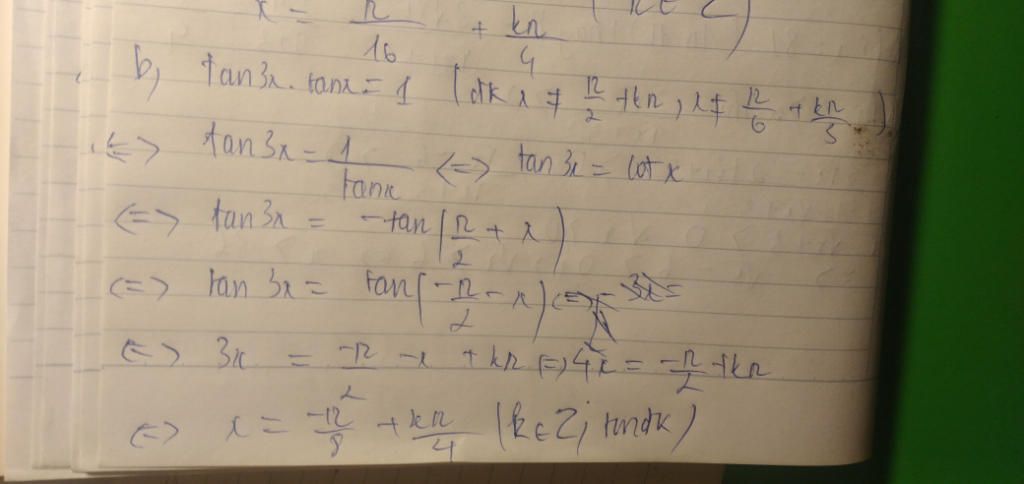 x = π/16 + kπ/4 (k∈Z)
b, tan3x.tanx = 1 (đk x ≠ π/2 + kπ, x ≠ π/6 + kπ/3)
<=> tan3x = 1/tanx <=> tan3x = cotx
<=> tan3x = -tan(π/2 + x)
<=> tan3x = tan(-π/2 - x)
<=> 3x = -π/2 - x + kπ <=> 4x = -π/2 + kπ
<=> x = -π/8 + kπ/4 (k∈Z;